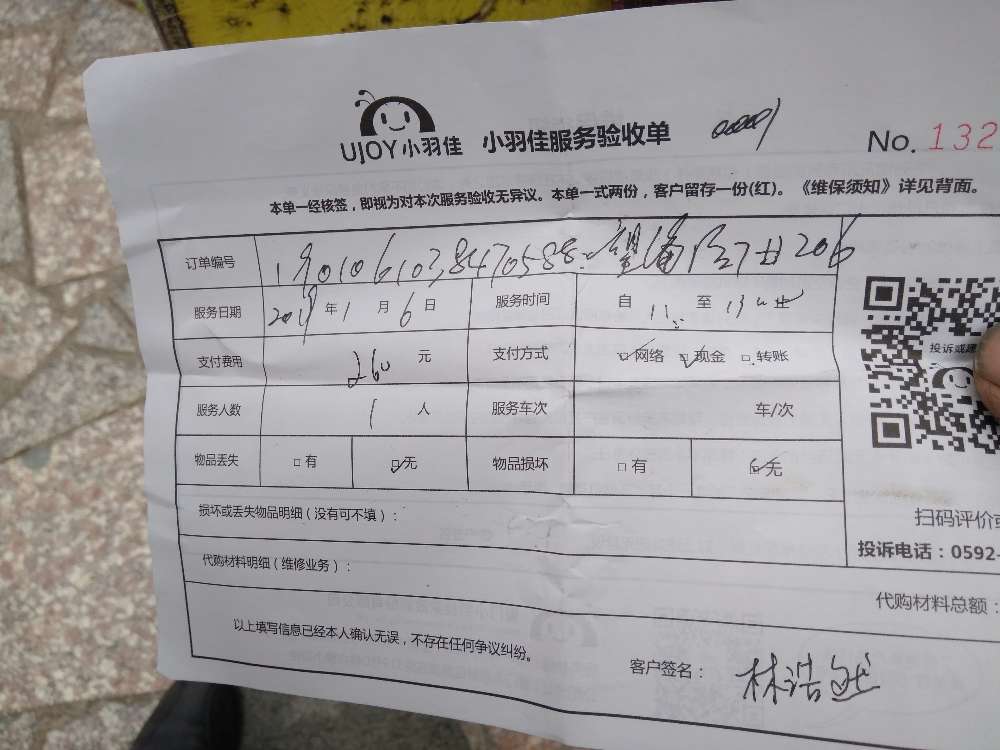 UJOY小羽佳 小羽佳服务验收单 No. 132
本单一经核签，即视为对本次服务验收无异议。本单一式两份，客户留存一份(红)。《维保须知》详见背面。
订单编号 190106103847058 206
服务日期 2019 年 1 月 6 日 服务时间 自 11: 至 13
支付费用 260 元 支付方式 网络 现金 转账
服务人数 1 人 服务车次 车/次
物品丢失 有 无 物品损坏 有 无
投诉或建
损坏或丢失物品明细（没有可不填）：
扫码评价或
投诉电话：0592-
代购材料明细（维修业务）：
代购材料总额：
以上填写信息已经本人确认无误，不存在任何争议纠纷。
客户签名： 林浩